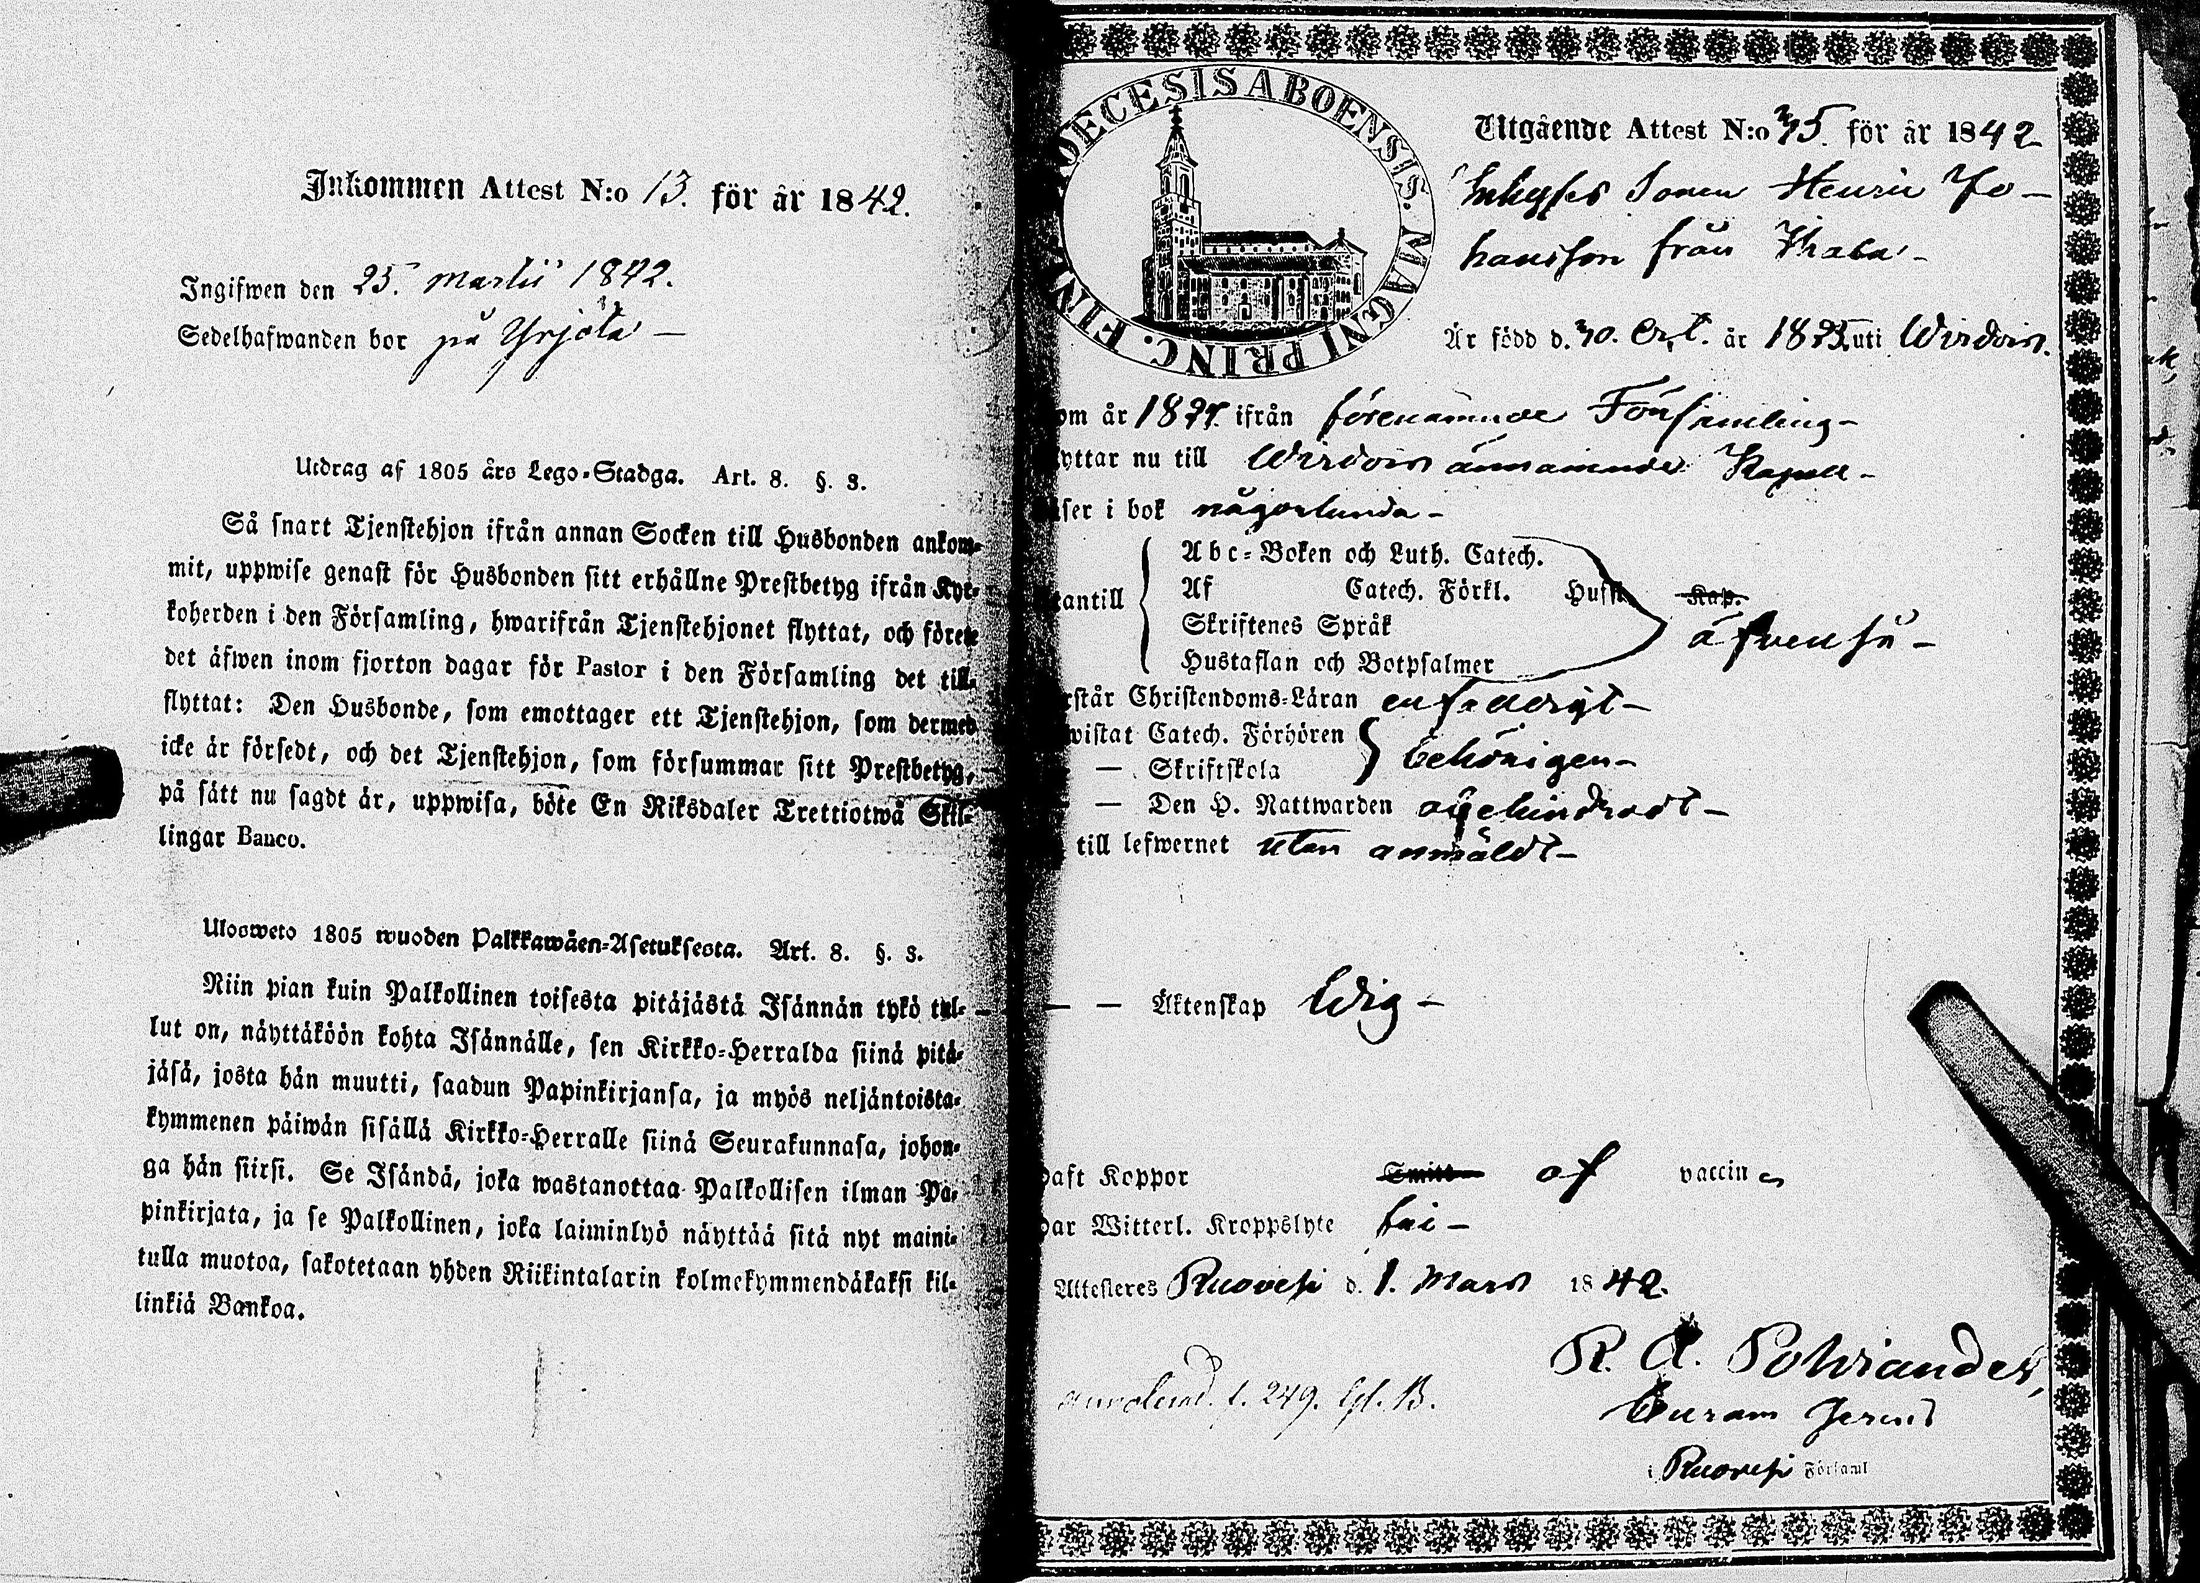 Inkommen Attest N:o 13. för år 1842.
Ingifwen den 25. Martii 1842.
Sedelhafwanden bor på Yrjölä
Utdrag af 1805 års Lego-Stadga. Art. 8. §. 3.
Så snart Tjenstehjon ifrån annan Socken till Husbonden ankom-
mit, uppwise genast för Husbonden sitt erhållne Prestbetyg ifrån Kyr-
koherden i den Församling, hwarifrån Tjenstehjonet flyttat, och förete
det äfwen inom fjorton dagar för Pastor i den Församling det till-
flyttat: Den Husbonde, som emottager ett Tjenstehjon, som dermed
icke är försedt, och det Tjenstehjon, som försummar sitt Prestbetyg,
på sätt nu sagdt är, uppwisa, böte En Riksdaler Trettiotwå Skil-
lingar Banco.
Ulosweto 1805 wuoden Palkkawäen-Asetuksesta. Art. 8. §. 3.
Niin pian kuin Palkollinen toisesta pitäjästä Isännän tykö tul-
lut on, näyttäköön kohta Isännälle, sen Kirkko-Herralda siinä pitä-
jäsä, josta hän muutti, saadun Papinkirjansa, ja myös neljäntoista-
kymmenen päiwän sisällä Kirkko-Herralle siinä Seurakunnasa, johon-
ga hän siirsi. Se Isändä, joka wastanottaa Palkollisen ilman Pa-
pinkirjata, ja se Palkollinen, joka laiminlyö näyttää sitä nyt maini-
tulla muotoa, sakotetaan yhden Riikintalarin kolmekymmendäkaksi kil-
linkiä Bankoa.
DIOECESIS ABOENSIS. MAGNI PRINC. FINL
Utgående Attest N:o 75. för år 1842
Inhyses Sonen Henric Jo-
hansson från
Är född d. 30. Oct. år 18 uti Wirdois.
om år 18 ifrån förenämnde Församling
yttar nu till Wirdois Kapell
äser i bok någorlunda
tantill
Abc-Boken och Luth. Catech.
Af Catech. Förkl. Hufst. Kap.
Skriftenes Språk
Hustaflan och Botpsalmer
äfvenså
rstår Christendoms-Läran enfaldigt
wistat Catech. Förhören
— Skriftskola
behörigen
— Den H. Nattwarden ogehindradt
till lefwernet utan anmäldt
— — Äktenskap ledig
aft Koppor Smitt af vaccin
ar Witterl. Kroppslyte fri
Attesteres Ruovesi d. 1. Mars 1842.
R. A. Polviander,
Curam Gerens
i Ruovesi Församl
249. B.